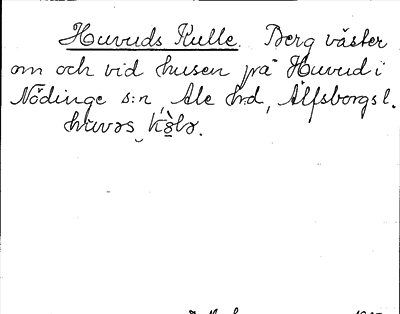 Huvuds Kulle. Berg väster
om och vid husen på Huvud i
Nödinge s:n, Ale hrd, Älfsborgs l.